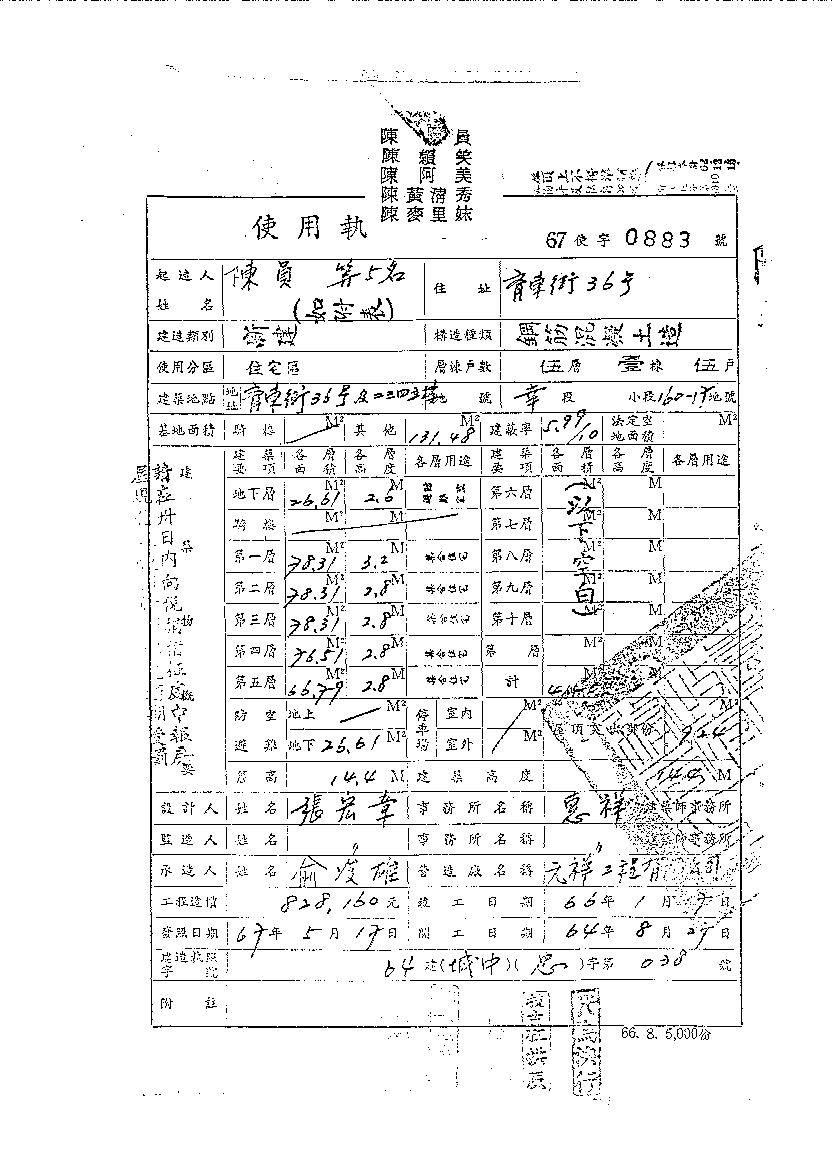 陳 員
陳賴 笑
陳 阿 美
陳黃清秀
陳麥里妹
使用執
67使字 0883 號
起造人姓名 陳員 等5名 (如附表) 住址 育東街36号
建造類別 新建 構造種類 鋼筋混凝土造
使用分區 住宅區 層棟戶數 伍層 壹棟 伍戶
建築地點 地址 育東街36号及二三四五樓 地號 幸 段 小段 160-17 地號
基地面積 騎樓 M² 其他 131.48 M² 建蔽率 5.99/10 法定空地面積 M²
建築要項 各層面積 各層高度 各層用途 建築要項 各層面積 各層高度 各層用途
地下層 26.61 M² 2.6 M 第六層 M² M
騎樓 M² M 第七層 M² M
第一層 78.31 M² 3.2 M 第八層 M² M
第二層 78.31 M² 2.8 M 第九層 M² M
第三層 78.31 M² 2.8 M 第十層 M² M
第四層 76.51 M² 2.8 M 第 層 M² M
第五層 66.79 M² 2.8 M 計 M² M
(以下空白)
防空避難 地上 M² 停車場 室內 M²
地下 26.61 M² 室外 M² 9.24
簷高 14.4 M 建築高度 14.4 M
設計人 姓名 張宏韋 事務所名稱 惠祥 建築師事務所
監造人 姓名 〃 事務所名稱 〃 建築師事務所
承造人 姓名 俞俊雄 營造廠名稱 元祥工程有限公司
工程造價 828,160元 竣工日期 66年1月17日
發照日期 67年5月17日 開工日期 64年8月27日
建造執照字號 64建(城中)(忠)字第 038 號
附註
66. 8. 5,000份